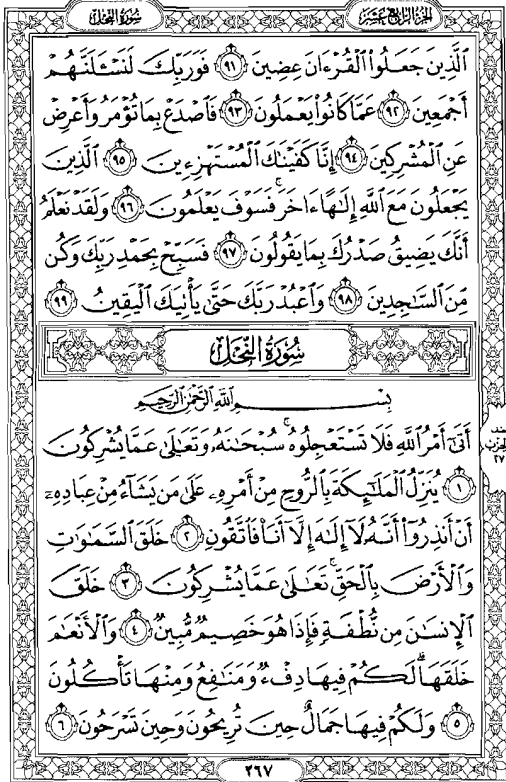 الجزء الرابع عشر
سورة النحل
ٱلَّذِينَ جَعَلُوا۟ ٱلْقُرْءَانَ عِضِينَ ٩١ فَوَرَبِّكَ لَنَسْـَٔلَنَّهُمْ
أَجْمَعِينَ ٩٢ عَمَّا كَانُوا۟ يَعْمَلُونَ ٩٣ فَٱصْدَعْ بِمَا تُؤْمَرُ وَأَعْرِضْ
عَنِ ٱلْمُشْرِكِينَ ٩٤ إِنَّا كَفَيْنَـٰكَ ٱلْمُسْتَهْزِءِينَ ٩٥ ٱلَّذِينَ
يَجْعَلُونَ مَعَ ٱللَّهِ إِلَـٰهًا ءَاخَرَ ۚ فَسَوْفَ يَعْلَمُونَ ٩٦ وَلَقَدْ نَعْلَمُ
أَنَّكَ يَضِيقُ صَدْرُكَ بِمَا يَقُولُونَ ٩٧ فَسَبِّحْ بِحَمْدِ رَبِّكَ وَكُن
مِّنَ ٱلسَّـٰجِدِينَ ٩٨ وَٱعْبُدْ رَبَّكَ حَتَّىٰ يَأْتِيَكَ ٱلْيَقِينُ ٩٩
سُورَةُ النَّحْلِ
بِسْمِ ٱللَّهِ ٱلرَّحْمَـٰنِ ٱلرَّحِيمِ
أَتَىٰٓ أَمْرُ ٱللَّهِ فَلَا تَسْتَعْجِلُوهُ ۚ سُبْحَـٰنَهُۥ وَتَعَـٰلَىٰ عَمَّا يُشْرِكُونَ
١ يُنَزِّلُ ٱلْمَلَـٰٓئِكَةَ بِٱلرُّوحِ مِنْ أَمْرِهِۦ عَلَىٰ مَن يَشَآءُ مِنْ عِبَادِهِۦٓ
أَنْ أَنذِرُوٓا۟ أَنَّهُۥ لَآ إِلَـٰهَ إِلَّآ أَنَا۠ فَٱتَّقُونِ ٢ خَلَقَ ٱلسَّمَـٰوَٰتِ
وَٱلْأَرْضَ بِٱلْحَقِّ ۚ تَعَـٰلَىٰ عَمَّا يُشْرِكُونَ ٣ خَلَقَ
ٱلْإِنسَـٰنَ مِن نُّطْفَةٍ فَإِذَا هُوَ خَصِيمٌ مُّبِينٌ ٤ وَٱلْأَنْعَـٰمَ
خَلَقَهَا ۗ لَكُمْ فِيهَا دِفْءٌ وَمَنَـٰفِعُ وَمِنْهَا تَأْكُلُونَ
٥ وَلَكُمْ فِيهَا جَمَالٌ حِينَ تُرِيحُونَ وَحِينَ تَسْرَحُونَ ٦
الحزب
٢٧
٢٦٧